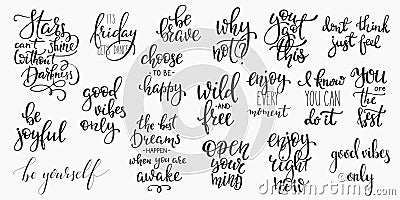 Stars
can't shine
without
Darkness
IT'S
friday
LET'S DANCE
be
brave
why
not?
you
got
this
don't think
just feel
choose
TO BE
happy
wild
AND
free
enjoy
EVERY
moment
I know
YOU CAN
do it
you
ARE
the
best
be
joyful
good
vibes
only
the best
Dreams
HAPPEN
when you are
awake
open
your
mind
enjoy
right
now
good vibes
only
be yourself
dreamstime.com